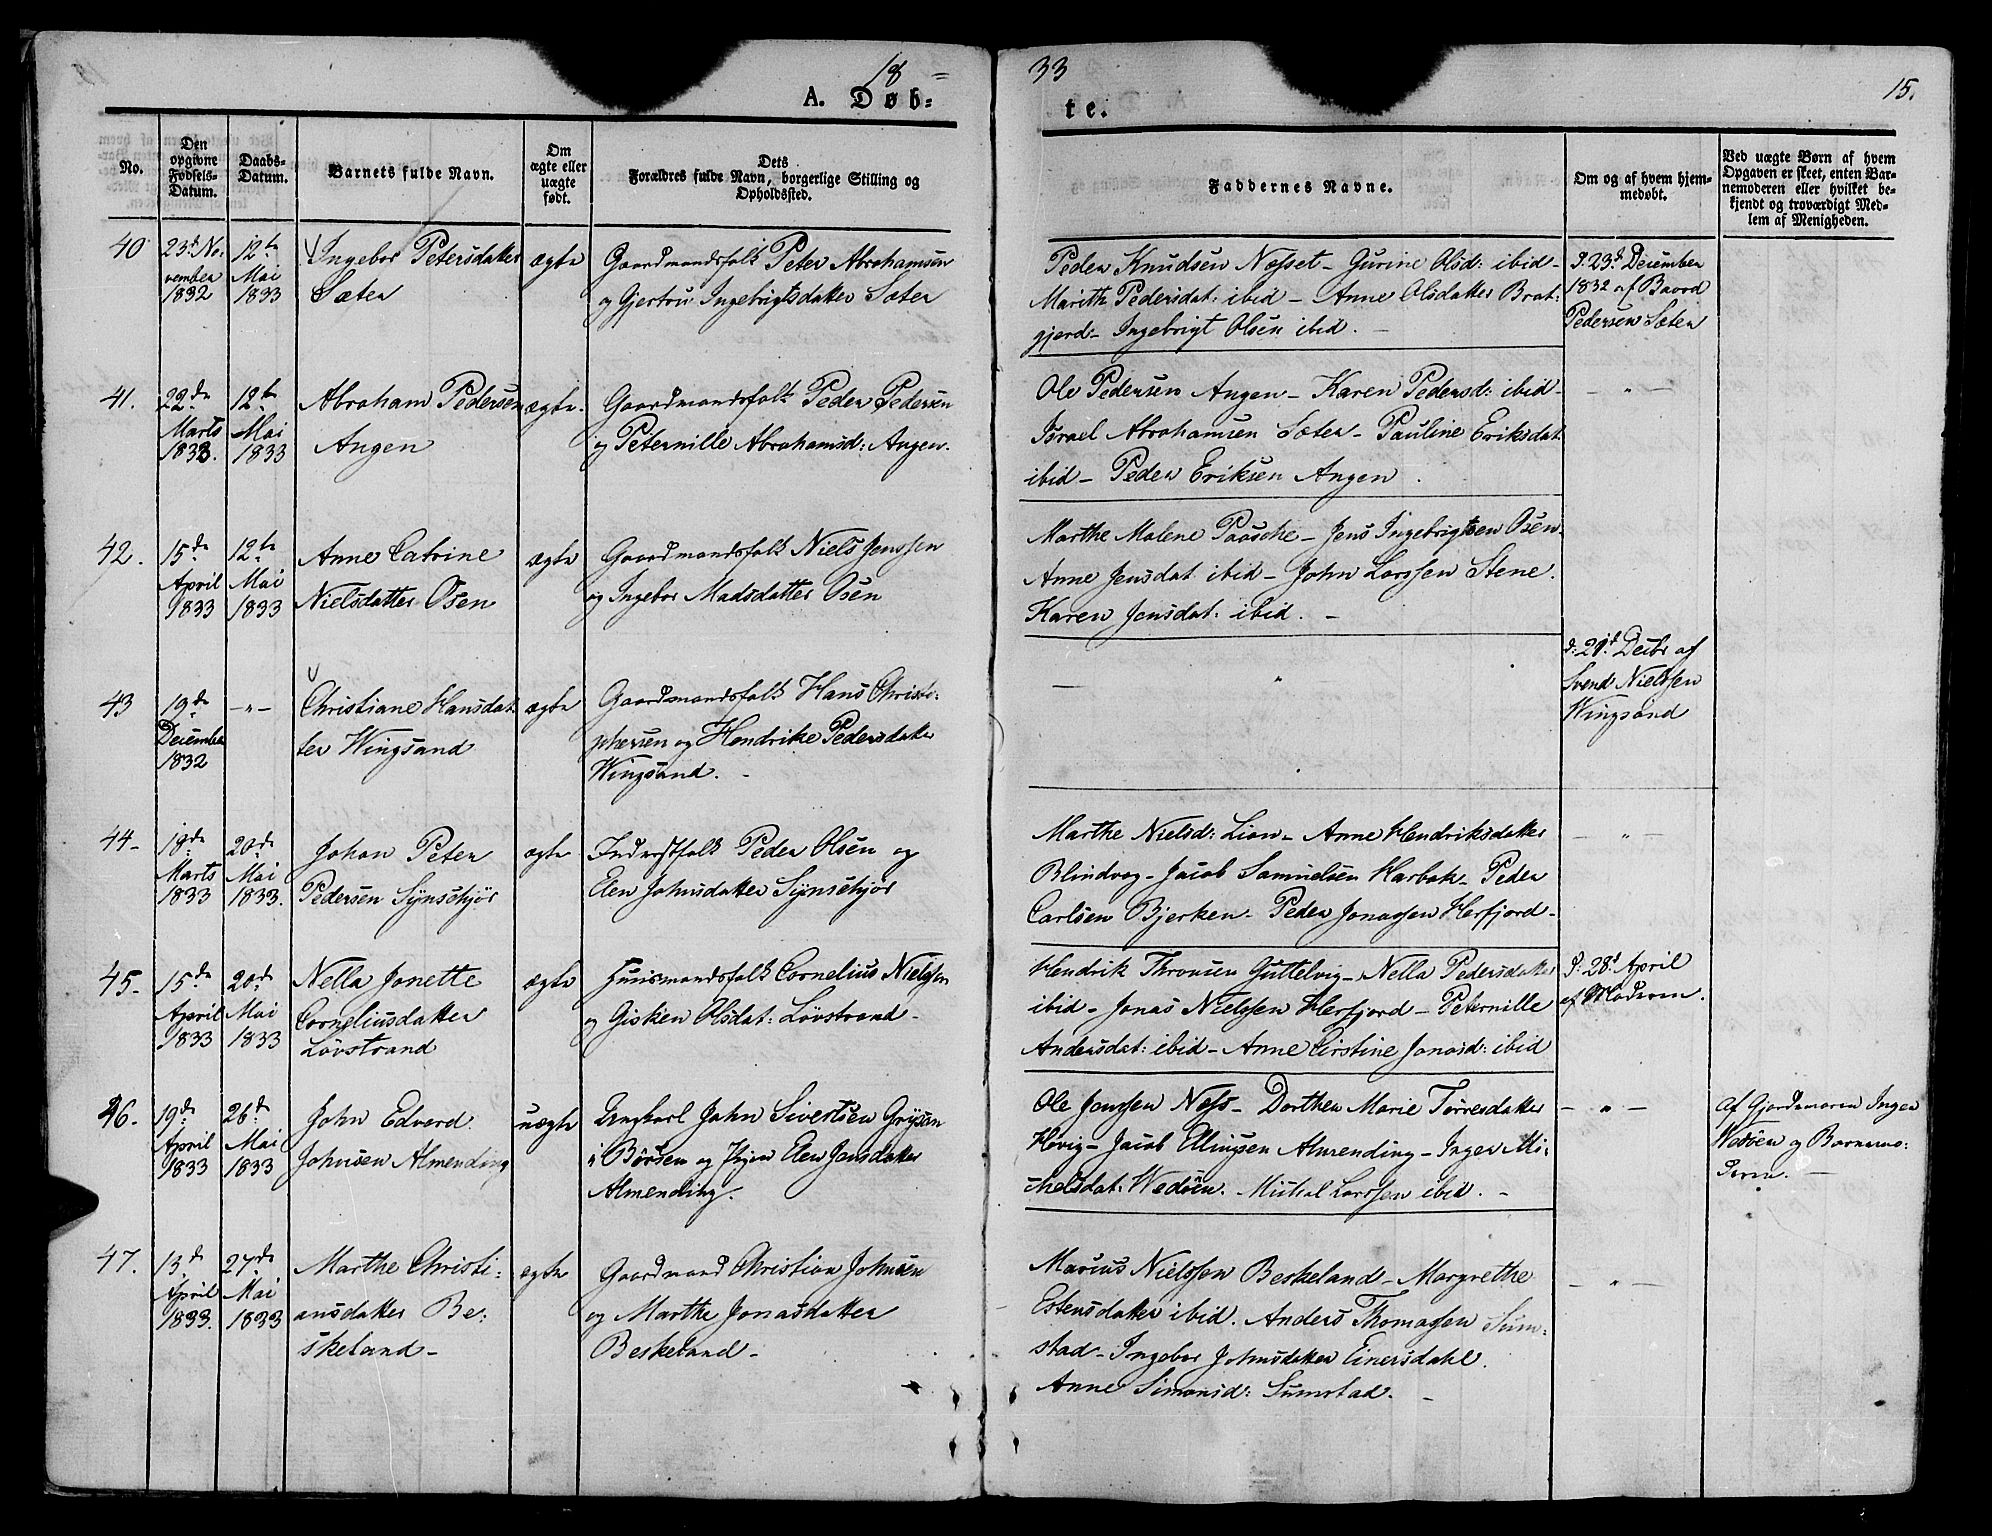 18 = 33
15.
A. Døb-
te.
No.
Den
opgivne
Fødsels-
Datum.
Daabs-
Datum.
Barnets fulde Navn.
Om
ægte eller
uægte
født.
Dets
Forældres fulde Navn, borgerlige Stilling og
Opholdssted.
Faddernes Navne.
Om og af hvem hjem-
medøbt.
Ved uægte Børn af hvem
Opgaven er skeet, enten Bar-
nemoderen eller hvilket be-
kjendt og troværdigt Med-
lem af Menigheden.
40
23d No-
vember
1832
12te
Mai
1833
Ingebor Petersdatter
Sæter
ægte
Gaardmandsfolk Peter Abrahamsen
og Gjertru Ingebrigtsdatter Sæter
Peder Knudsen Næsset - Gurine Olsd: ibid -
Marith Pedersdat: ibid - Anne Olsdatter Brat-
gjerd - Ingebrigt Olsen ibid. -
d. 23d December
1832 af Baard
Pedersen Sæter
41.
22de
Marts
1833.
12te
Mai
1833
Abraham Pedersen
Angen
ægte.
Gaardmandsfolk Peder Pedersen
og Peternille Abrahamsd: Angen.
Ole Pedersen Angen - Karen Pedersd: ibid -
Israel Abrahamsen Sæter - Pauline Eriksdat
ibid - Peder Eriksen Angen.
- " -
42.
15de
April
1833
12te
Mai
1833
Anne Catrine
Nielsdatter Osen
ægte
Gaardmandsfolk Niels Jenssen
og Ingebor Madsdatter Osen
Marthe Malene Paasche - Jens Ingebrigtsen Osen.
Anne Jensdat ibid - John Larssen Stene.
Karen Jensdat: ibid. -
43
19de
December
1832
- " -
Christiane Hansdat-
ter Wingsand
ægte
Gaardmandsfolk Hans Christo-
phersen og Hendrike Pedersdatter
Wingsand. -
- "
d: 29d Decbr af
Svend Nielssen
Wingsand
44-
18de
Marts
1833
20de
Mai
1833.
Johan Peter
Pedersen Synschjør
ægte
Inderstfolk Peder Olsen og
Elen Johnsdatter Synschjør
Marthe Nielsd: Lian - Anne Hendriksdatter
Blindvog - Jacob Samuelsen Harbak - Peder
Carlsen Bjerken - Peder Jonassen Herfjord -
- " -
45-
15de
April
1833
20de
Mai
1833
Nella Jonette
Corneliusdatter
Løvstrand
ægte
Huusmandsfolk Cornelius Nielssen
og Gisken Olsdat: Løvstrand -
Hendrik Thronsen Guttelvig - Nella Pedersdatter
ibid - Jonas Nielssen Herfjord - Peternille
Andersdat: ibid - Anne Cirstine Jonasd: ibid
d: 28d April
af Moderen.
46.
19de
April
1833
26de
Mai
1833
John Edvard
Johnsen Almending
uægte
Ungkarl John Sivertsen Grjsan
i Børsen og Pigen Elen Jensdatter
Almending.
Ole Jenssen Næss - Dorthea Marie Tørresdatter
Høvig - Jacob Ellingsen Almending - Inger Mi-
chelsdat: Wedøen. Michal Larssen ibid. -
- " -
Af Gjordemoren Inger
Wedøen og Barnemo-
deren. -
47.
13de
April
1833.
27de
Mai
1833
Marthe Christi-
ansdatter Be-
skeland -
ægte
Gaardmand Christian Johnsen
og Marthe Jonasdatter
Beskeland -
Marius Nielssen Beskeland - Margrethe
Estensdatter ibid. Anders Thomassen Sum-
stad - Ingebor Johnsdatter Einersdahl.
Anne Simonsd: Sumstad. -
- " -